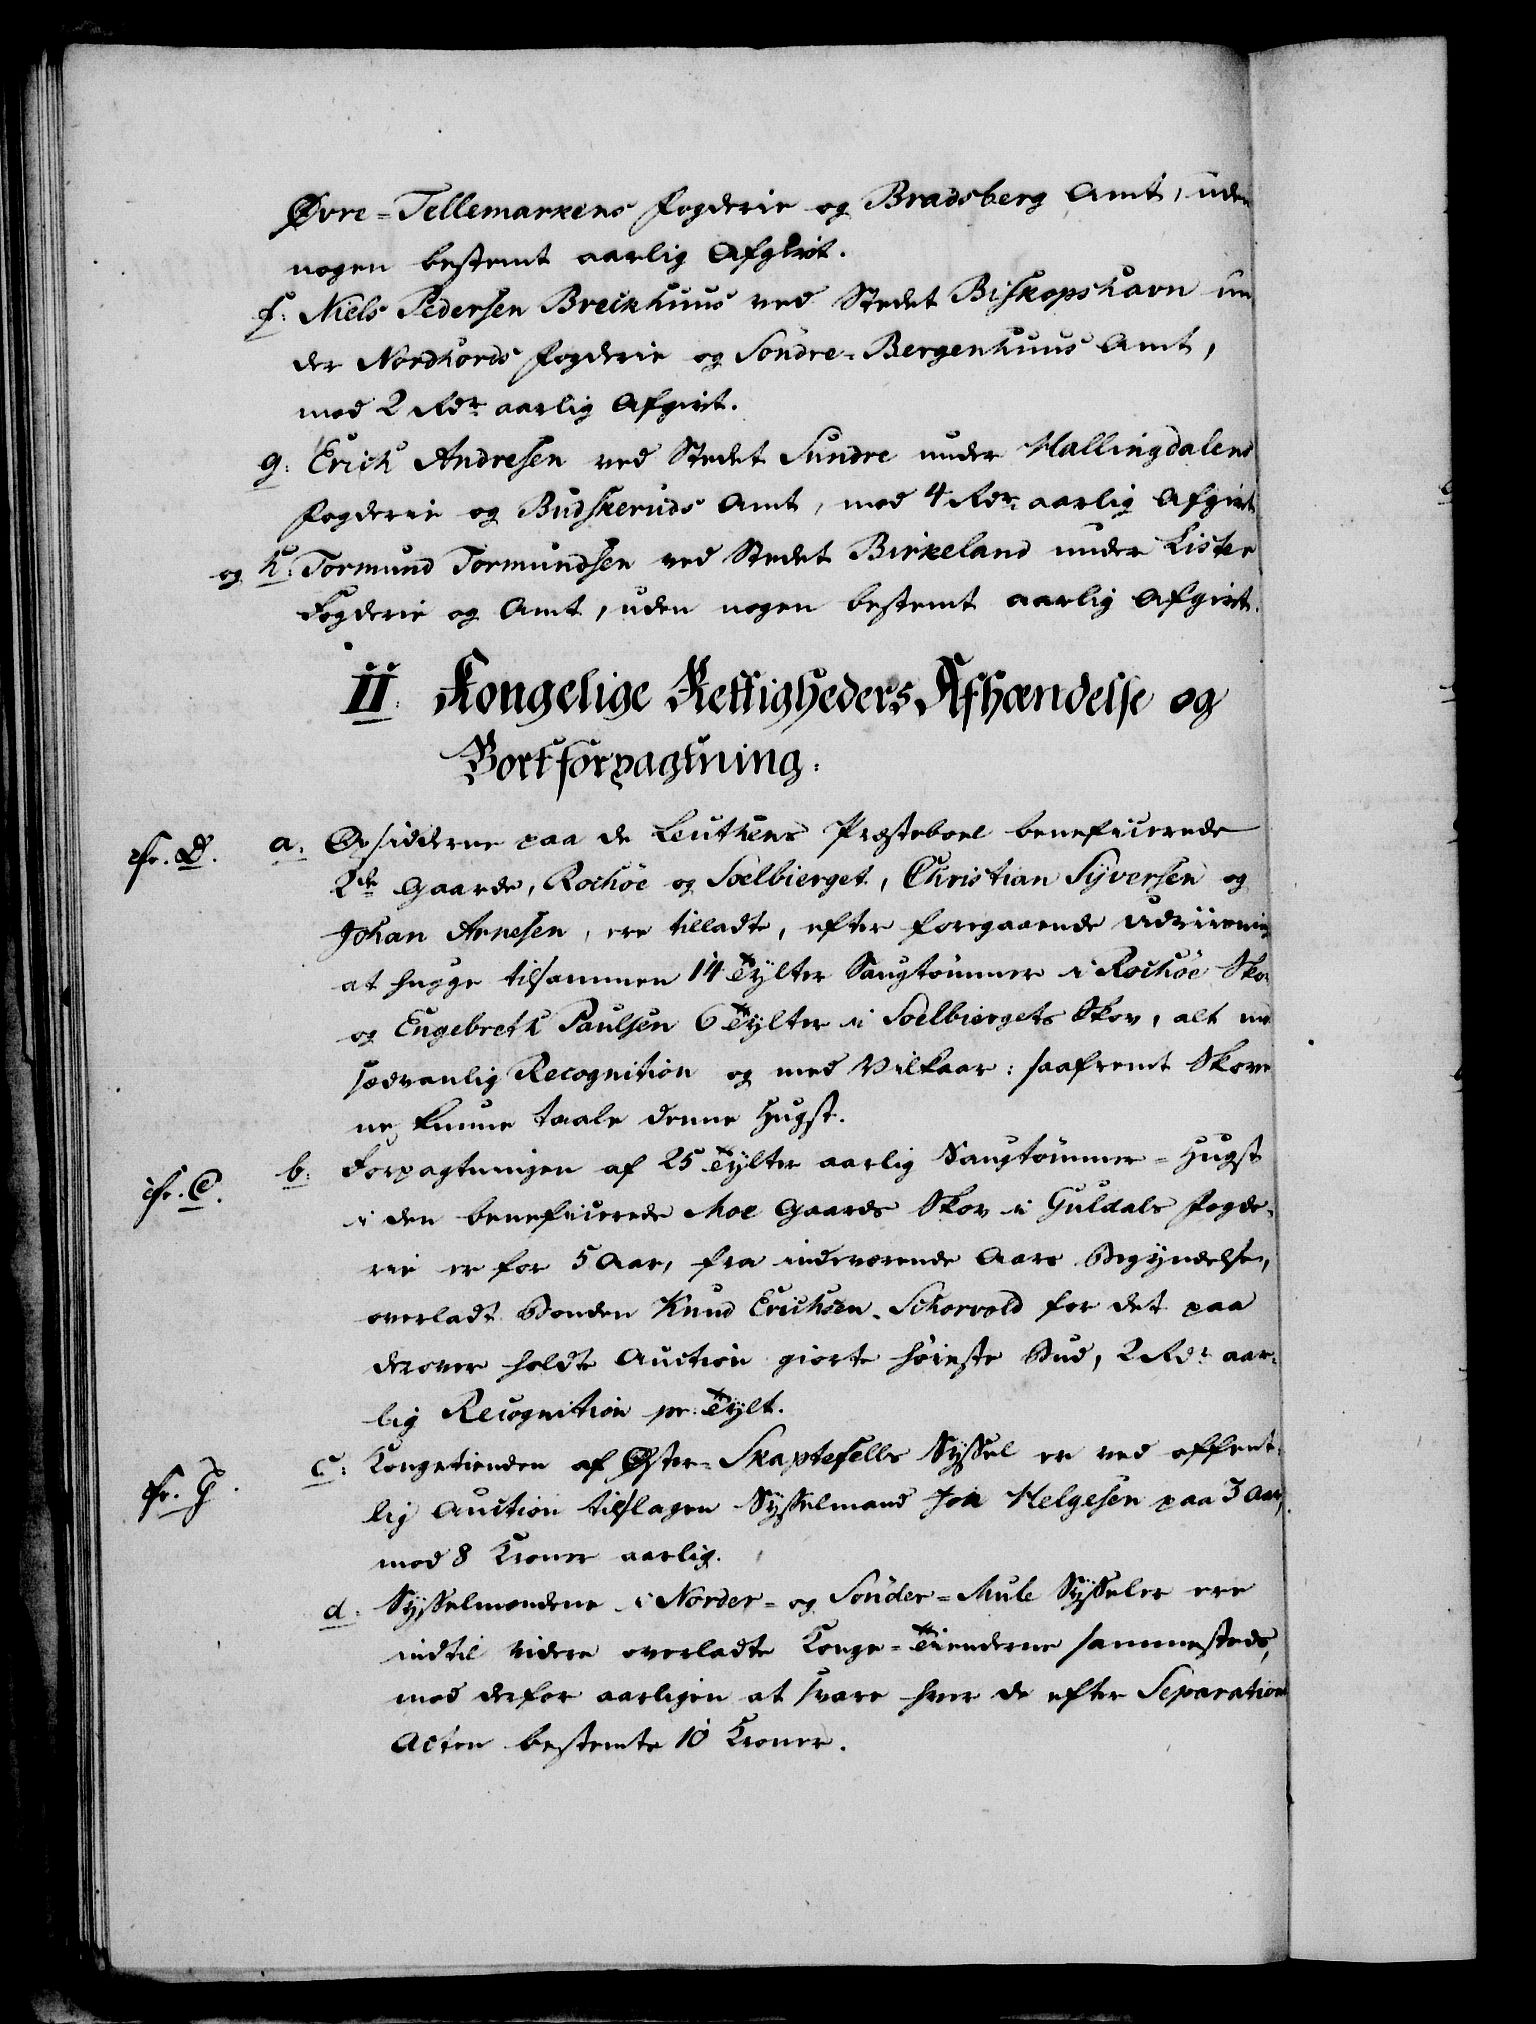 Øvre=Tellemarkens Fogderie og Bradsberg Amt, uden
nogen bestemt aarlig Afgivt.
f: Niels Pedersen Breckhuus ved Stedet Biskopshavn un
der Nordhords Fogderie og Söndre-Bergenhuus Amt,
mod 2 Rdr aarlig Afgivt.
g: Erich Andresen ved Stedet Sundre under Hallingdalens
Fogderie og Budskeruds Amt, mod 4 Rdr aarlig Afgivt
og h: Tormund Tormundsen ved Stedet Birkeland under Lister
Fogderie og Amt, uden nogen bestemt aarlig Afgivt.
II. Kongelige Rettigheders Afhændelse og
Bortforpagtning.
cfr. D. a. Opsidderne paa de Leuthens Præsteboel beneficerede
2de Gaarde, Rochöe og Soelbierget, Christian Syversen og
Johan Arnesen, ere tilladte, efter foregaaende Udviisning
at hugge tilsammen 14 Tylter Saugtömmer i Rochöe Skov
og Engebreth Paulsen 6 Tylter i Soelbiergets Skov, alt mod
sædvanlig Recognition og med Vilkaar: saafremt Skove
ne kunne taale denne Hugst.
cfr. C. b. Forpagtningen af 25 Tylter aarlig Saugtömmer=Hugst
i den beneficerede Moe Gaards Skov i Guldals Fogde-
rie er for 5 Aar, fra indeværende Aars Begyndelse,
overladt Bonden Knud Erichsen Schorvold for det paa
derover holdte Auction giorte höieste Bud, 2 Rdr aar-
lig Recognition pr. Tylt.
cfr. G. c: Kongetienden af Öster=Skaptefells Syssel er ved offent-
lig Auction tilslagen Sysselmand Jon Helgesen paa 3 Aar,
mod 8 Kroner aarlig.
d. Sysselmændene i Norder= og Sönder=Mule Sysseler ere
indtil videre overladte Konge=Tienderne sammesteds,
mod derfor aarligen at svare hver de efter Separations
Acten bestemte 10 Kroner.